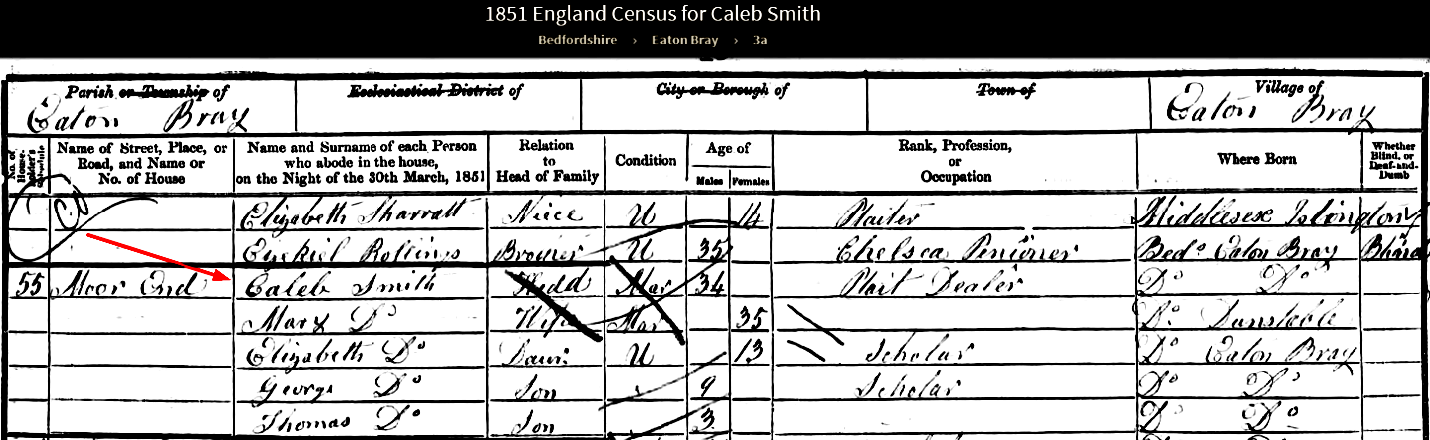 1851 England Census for Caleb Smith
Bedfordshire > Eaton Bray > 3a
Parish or Township of Ecclesiastical District of City or Borough of Town of Village of
Eaton Bray Eaton Bray
No. of House-holder's Schedule Name of Street, Place, or Road, and Name or No. of House Name and Surname of each Person who abode in the house, on the Night of the 30th March, 1851 Relation to Head of Family Condition Age of Males Females Rank, Profession, or Occupation Where Born Whether Blind, or Deaf-and-Dumb
Elizabeth Sharratt Niece U 14 Plaiter Middlesex Islington
Ezekiel Rollings Brother U 35 Chelsea Pensioner Bedo Eaton Bray Blind
55 Moor End Caleb Smith Head Mar 34 Plait Dealer Do Do
Mary Do Wife Mar 35 Do Dunstable
Elizabeth Do Daur U 13 Scholar Do Eaton Bray
George Do Son 9 Scholar Do Do
Thomas Do Son 3 Do Do